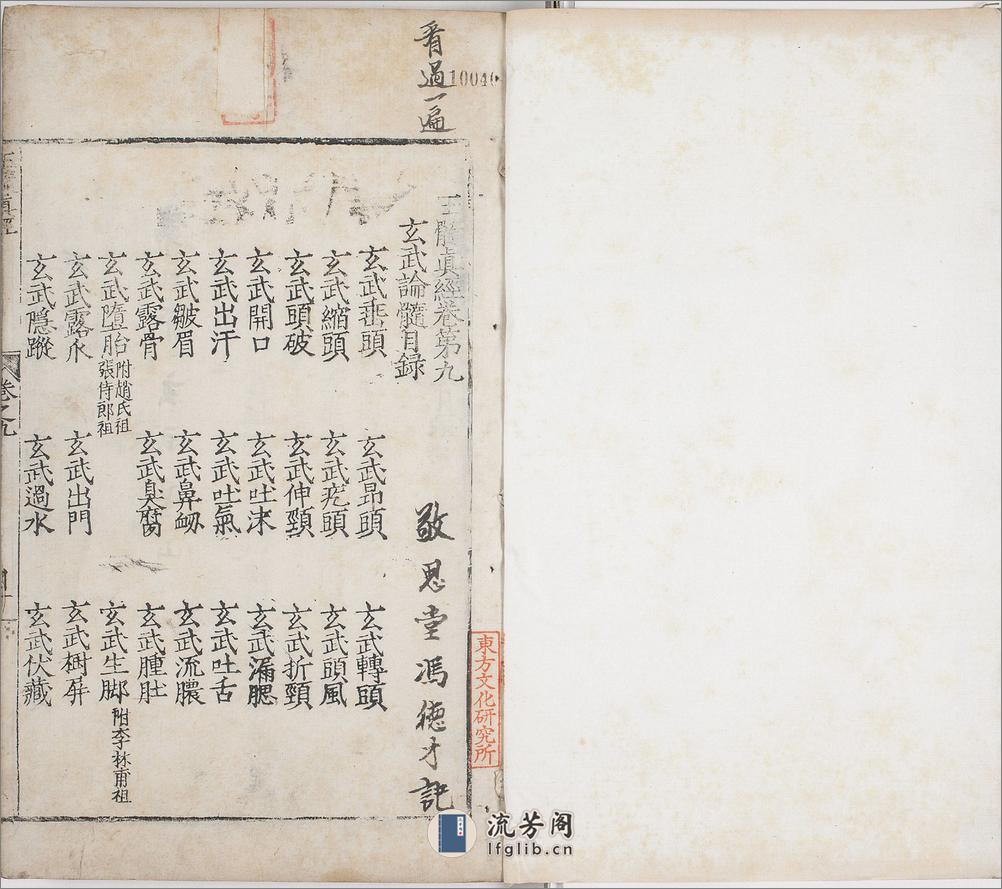 看過一遍
10040
玉髓眞經卷第九
玄武論髓目録
敬思堂馮德才記
東方文化研究所
玄武垂頭
玄武昂頭
玄武轉頭
玄武縮頭
玄武頭風
玄武頭破
玄武伸頸
玄武折頸
玄武開口
玄武吐沫
玄武漏腮
玄武出汗
玄武吐氣
玄武吐舌
玄武皺眉
玄武鼻衂
玄武流膿
玄武露骨
玄武臭腐
玄武腫肚
玄武墮胎 附趙氏祖
張侍郎祖
玄武生脚 附李林甫祖
玄武露水
玄武出門
玄武樹屏
玄武隱蹤
玄武過水
玄武伏藏
卷之九
流芳阁
lfglib.cn